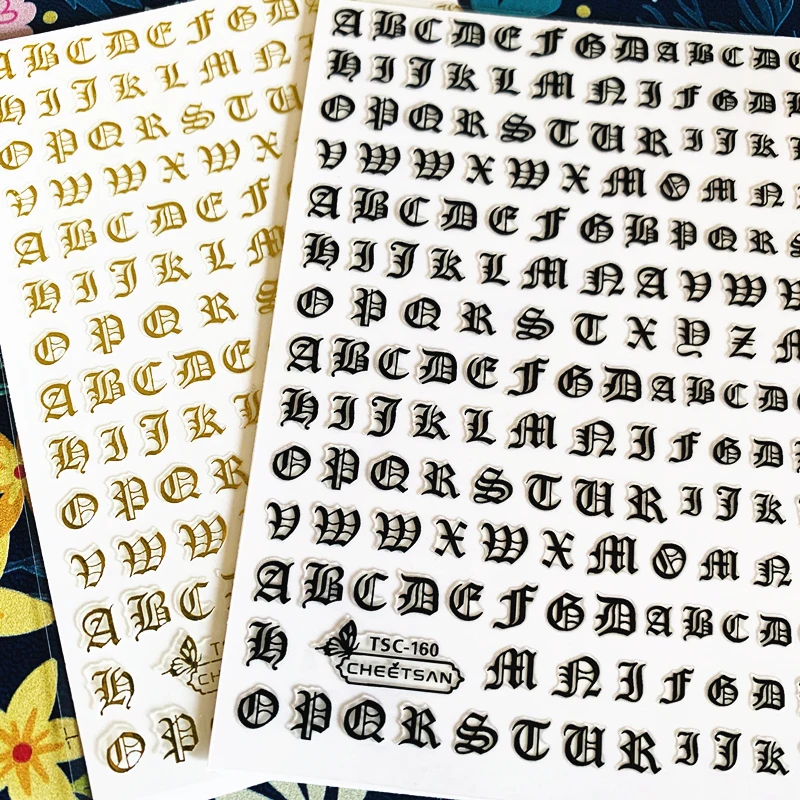 A B C D E F G D
H I J K L M N
O P Q R S T U
V W W X W X
A B C D E F G
H I J K L M
O P Q R S
A B C D E
H I J K
O P Q R
V W W
A B C
H
O P
A B C D E F G D A B C D
H I J K L M N I F G D
O P Q R S T U R I J K
V W W X W X M O M N
A B C D E F G B P Q R S
H I J K L M N A V W W
O P Q R S T X Y Z M
A B C D E F G D A B C D
H I J K L M N I F G D
O P Q R S T U R I J K
V W W X W X M O M N
A B C D E F G D A B C D
H TSC-160 M N I F G D
CHEETSAN
O P Q R S T U R I J K